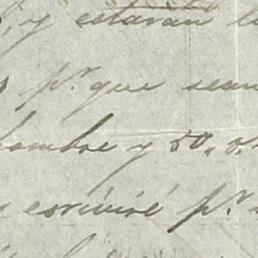 y estaran
pr. que sean
hombre y 50,,
escriviré pr.